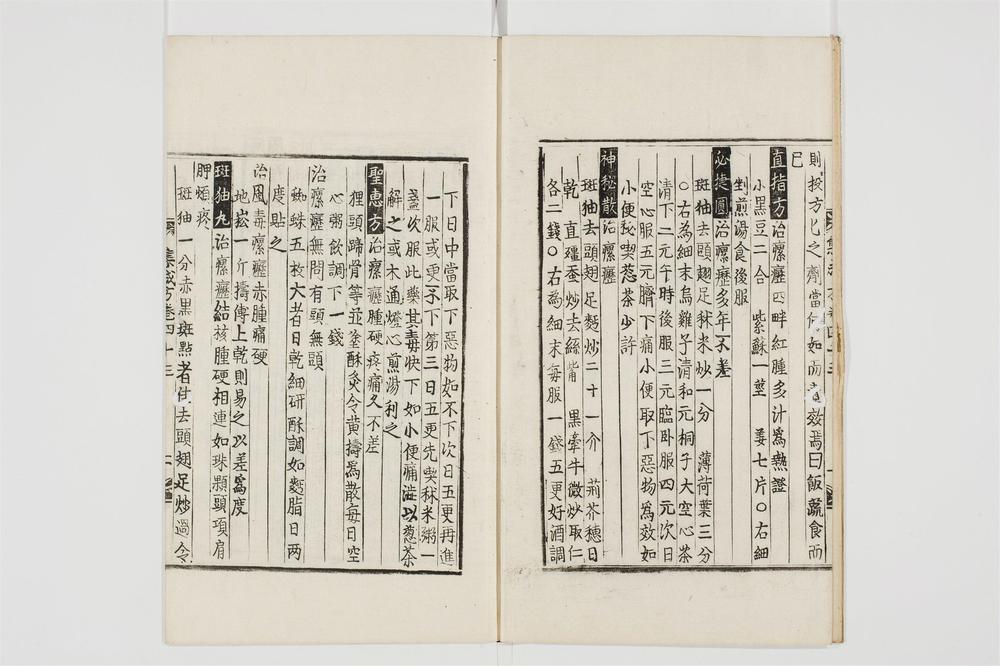 則投方匕之齊當何如而
效焉曰飯蔬食而
已
直指方治瘰癧四畔紅腫多汁爲熱證
小黑豆二合 紫蘇一莖 姜七片○右細
剉煎湯食後服
必捷圓治瘰癧多年不差
斑猫去頭翅足秫米炒一分 薄荷葉三分
○右為細末烏雞子清和元桐子大空心茶
清下二元午時後服三元臨卧服四元次日
空心服五元臍下痛小便取下惡物爲效如
小便秘喫葱茶少許
神秘散治瘰癧
斑猫去頭翅足麪炒二十一介 荊芥穗日
乾 直殭蚕炒去絲觜 黒牽牛微炒取仁
各二錢○右為細末每服一錢五更好酒調
下日中當取下惡物如不下次日五更再進
一服或更不下第三日五更先喫秫米粥一
盞次服此藥其毒快下如小便痛澁以葱茶
解之或木通燈心煎湯利之
聖惠方治瘰癧腫硬疼痛久不差
狸頭蹄骨等並塗酥灸令黄擣爲散每日空
心粥飲調下一錢
治瘰癧無問有頭無頭
蜘蛛五枚大者日乾細研酥調如麪脂日两
度貼之
治風毒瘰癧赤腫痛硬
地菘一斤擣傅上乾則易之以差爲度
斑猫丸治瘰癧結核腫硬相連如珠顆頭項肩
胛頰疼
斑猫一分赤黒斑點者佳去頭翅足炒過令
集成方卷四十三